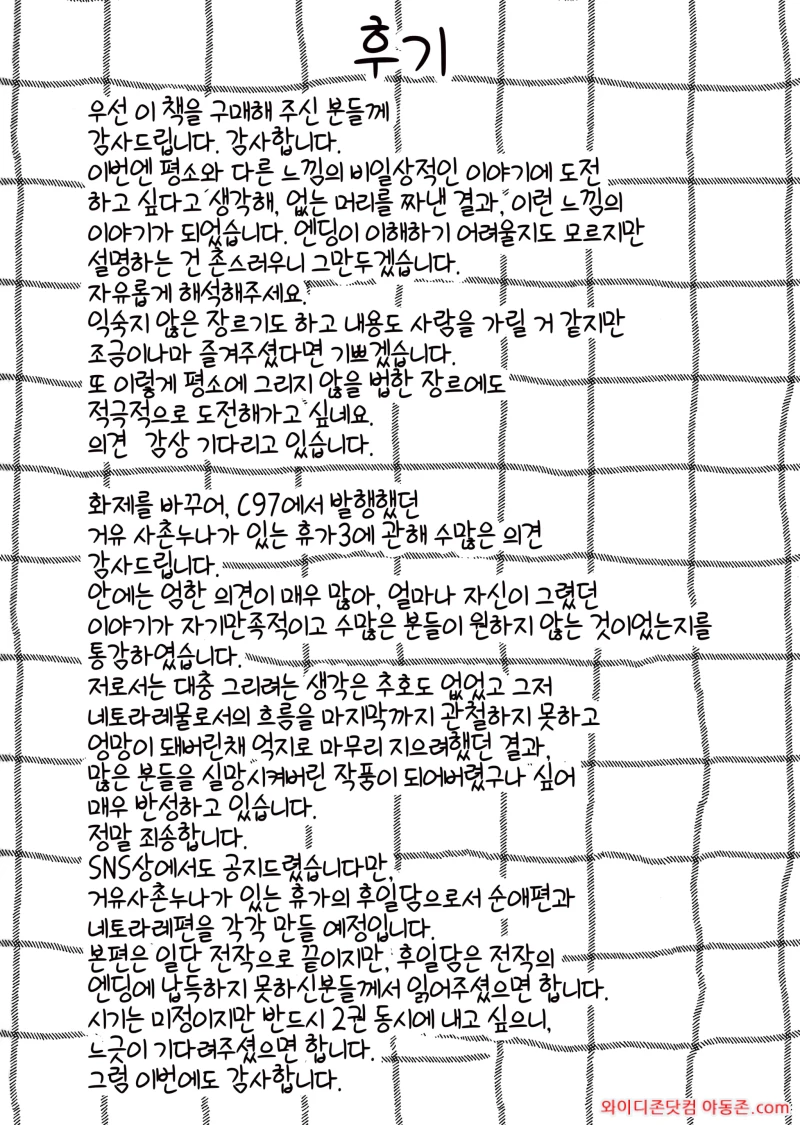 후기
우선 이 책을 구매해 주신 분들께
감사드립니다. 감사합니다.
이번엔 평소와 다른 느낌의 비일상적인 이야기에 도전
하고 싶다고 생각해, 없는 머리를 짜낸 결과, 이런 느낌의
이야기가 되었습니다. 엔딩이 이해하기 어려울지도 모르지만
설명하는 건 촌스러우니 그만두겠습니다.
자유롭게 해석해주세요.
익숙지 않은 장르기도 하고 내용도 사람을 가릴 거 같지만
조금이나마 즐겨주셨다면 기쁘겠습니다.
또 이렇게 평소에 그리지 않을 법한 장르에도
적극적으로 도전해가고 싶네요.
의견 감상 기다리고 있습니다.
화제를 바꾸어, C97에서 발행했던
거유 사촌누나가 있는 휴가3에 관해 수많은 의견
감사드립니다.
안에는 엄한 의견이 매우 많아, 얼마나 자신이 그렸던
이야기가 자기만족적이고 수많은 분들이 원하지 않는 것이었는지를
통감하였습니다.
저로서는 대충 그리려는 생각은 추호도 없었고 그저
네토라레물로서의 흐름을 마지막까지 관철하지 못하고
엉망이 돼버린채 억지로 마무리 지으려했던 결과,
많은 분들을 실망시켜버린 작품이 되어버렸구나 싶어
매우 반성하고 있습니다.
정말 죄송합니다.
SNS상에서도 공지드렸습니다만,
거유사촌누나가 있는 휴가의 후일담으로서 순애편과
네토라레편을 각각 만들 예정입니다.
본편은 일단 전작으로 끝이지만, 후일담은 전작의
엔딩에 납득하지 못하신분들께서 읽어주셨으면 합니다.
시기는 미정이지만 반드시 2권 동시에 내고 싶으니,
느긋이 기다려주셨으면 합니다.
그럼 이번에도 감사합니다.
와이디존닷컴 야동존.com